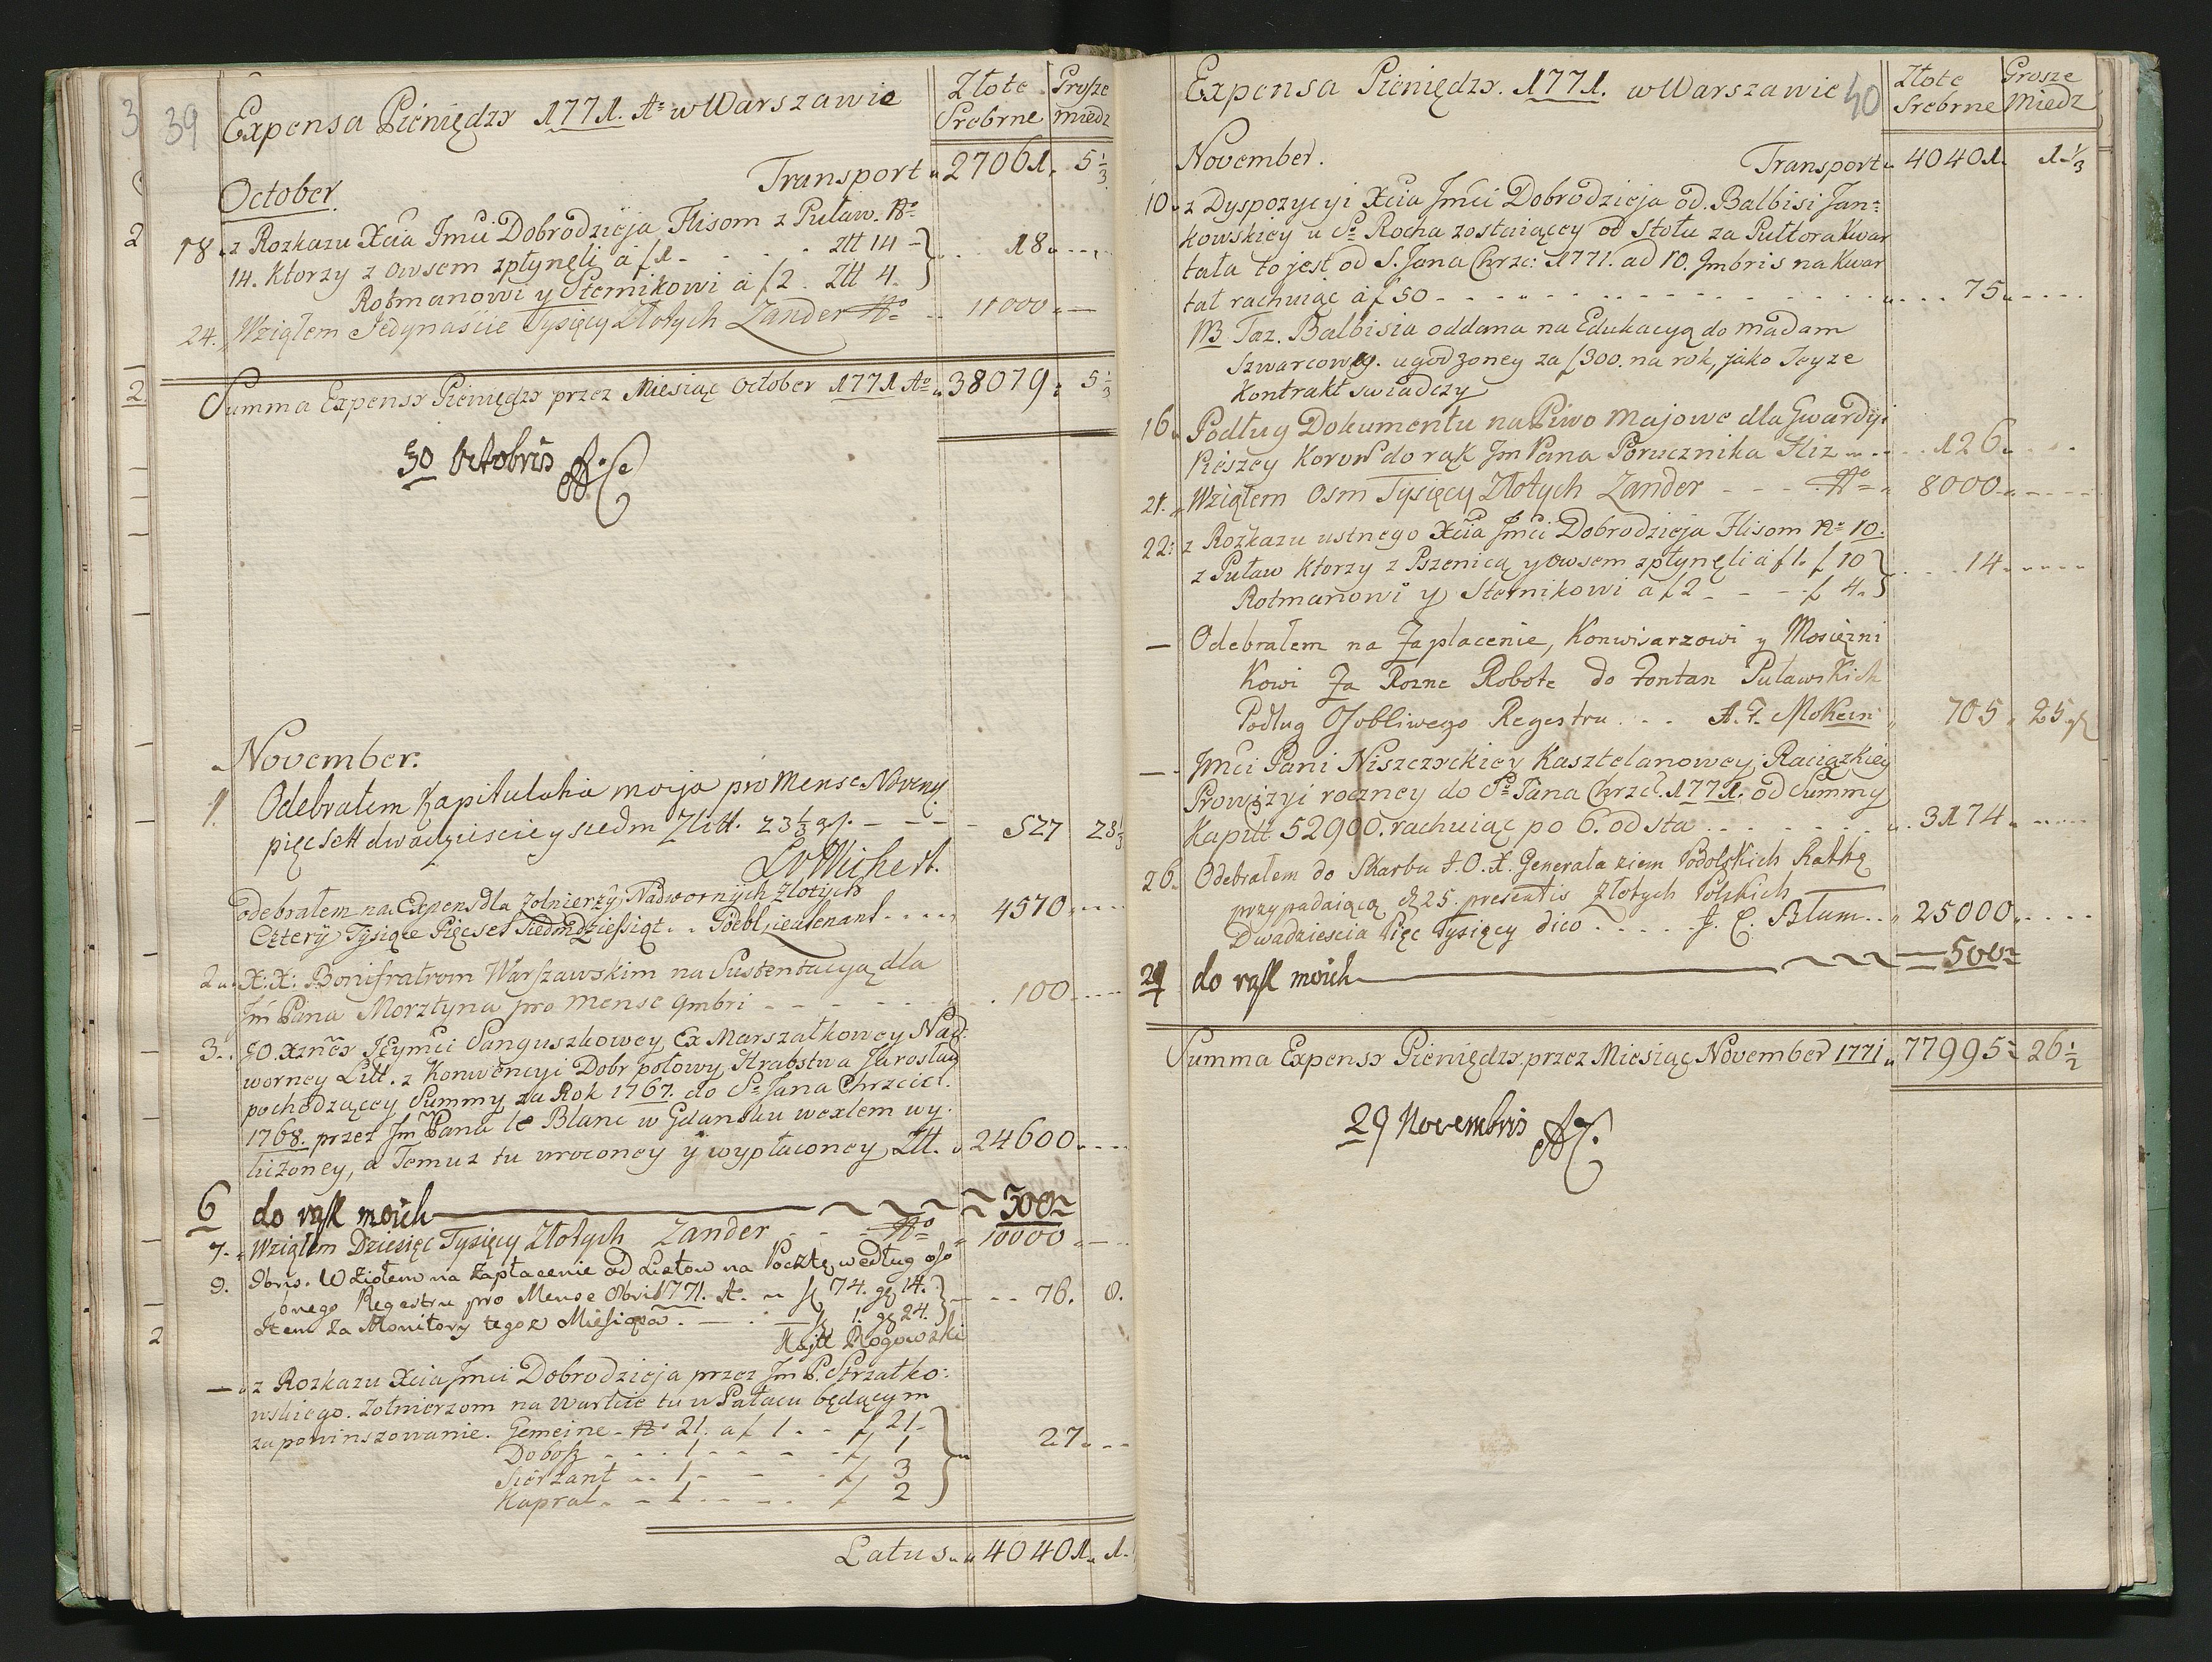 39
Expensa Pieniędzy 1771. Ao w Warszawie
Złote Srebrne
Grosze miedz
October.
Transport 27061. 5 1/3
18. z Rozkazu Xcia Jmci Dobrodzieja Flisom z Puław. No
14. ktorzy z owsem zpłynęli à f 1 - - - Ztt 14 -
Rotmanowi y Sternikowi à f 2. Ztt 4. 18
24. Wziąłem Jedynaście Tysięcy Złotych Zander No 11000
Summa Expensy Pieniędzy przez Miesiąc October 1771 Ao 38079. 5 1/3
30 Octobris
November.
1. Odebrałem Kapitulatia moja pro Mense Novemb
pięc sett dwadziescie y siedm Zltt. 23 1/3 gr. - - - 527 23 1/3
Wichert.
odebrałem na Expens dla Zolnierzÿ Nadwornÿch Złotÿch
Czterÿ Tÿsiące Pięcset Siedmdziesiąt . . Goebl, lieutenant - - - 4570
2. X: X: Bonifratrom Warszawskim na Sustentacyą dla
Jm Pana Morztyna pro Mense 9mbri - - - 100
3. JO. Xzney Jeymci Sanguszkowey Ex Marszałkowey Nad:
worney Litt. z Konwencyi Dobr połowy Hrabstwa Jarosław
pochodzącey Summy za Rok 1767. do So Jana Chrzciel.
1768. przez Jm Pana le Blanc w Gdansku wexlem wy.
liczoney, a Temuz tu wroconey ÿ wypłaconey Ztt. 24600
6 do rąk moich 500
7. Wziąłem Dziesięc Tysięcy Złotych Zander - - - No 10000
9. 9bris. Wziołem na Zapłacenie od Listow na Pocztę według oso
bnego Regestru pro Mense 8bri 1771. Ao f 74. gr 14.
Item Za Monitory tegoz Miesiąca - - f 1. gr 24. 76. 8.
Rogowski
— z Rozkazu Xcia Jmci Dobrodzieja przez Jm P. Strzałko:
wskiego. Zołnierzom na Warcie tu w Pałacu będącym
za powinszowanie. Gemeine - No 21. a f 1 - - f 21 -
Dobosz - - 1 - - - f 1
Sierżant - - 1 - - - f 3
Kapral - - 1 - - - f 2 27
Latus 40401. 1.
Expensa Pieniędzy. 1771. w Warszawie 40
Złote Srebrne
Grosze Miedz
November.
Transport 40401. 1 1/3
10. z Dyspozycyi Xcia Jmci Dobrodzieja od Balbisi Jan=
kowskiey u So Rocha zostaiącey od Stołu za Pułtora Kwar
tała to jest od S. Jana Chrzc: 1771. ad 10. 9mbris na Kwar
tał rachuiąc à f 50 - - - 75
NB Taz. Balbisia oddana na Edukacyą do Madam
Szwarcowey. ugodzoney za f 300. na rok, jako Jeyze
Kontrakt swiadczy
16. Podług Dokumentu na Piwo Majowe dla Gwardyi
Pieszey Koron do rąk Jm Pana Porucznika Hiz 126
21. Wziąłem Osm Tysięcy Złotych Zander - - - No 8000
22: z Rozkazu ustnego Xcia Jmci Dobrodzieja Flisom No 10.
z Puław ktorzy z Pszenicą y owsem zpłynęli à f 1. f 10
Rotmanowi y Sternikowi a f 2 - - - f 4. 14
— Odebrałem na Zapłacenie, Konwisarzowi y Mosiezni
kowi Za Rozne Robote do Fontan Puławskich
Podług Osobliwego Regestru . . . A. F. Mokein 705. 25 gr
— Jmci Pani Niszczyckiey Kasztelanowey Raciązkiey
Prowizyi roczney do So Jana Chrzc. 1771. od Summy
Kapitt 52900. rachuiąc po 6. od sta 3174
26. Odebrałem do Skarbu J. O. X. Generała ziem Podolskich Rathę
przypadaiącą d 25. presentis Złotych Polskich
Dwadziescia Pięc Tysięcy dico . . . . J. C. Blum 25000
29 do rąk moich 500
Summa Expensy Pieniędzy. przez Miesiąc November 1771 77995 26 1/2
29 Novembris